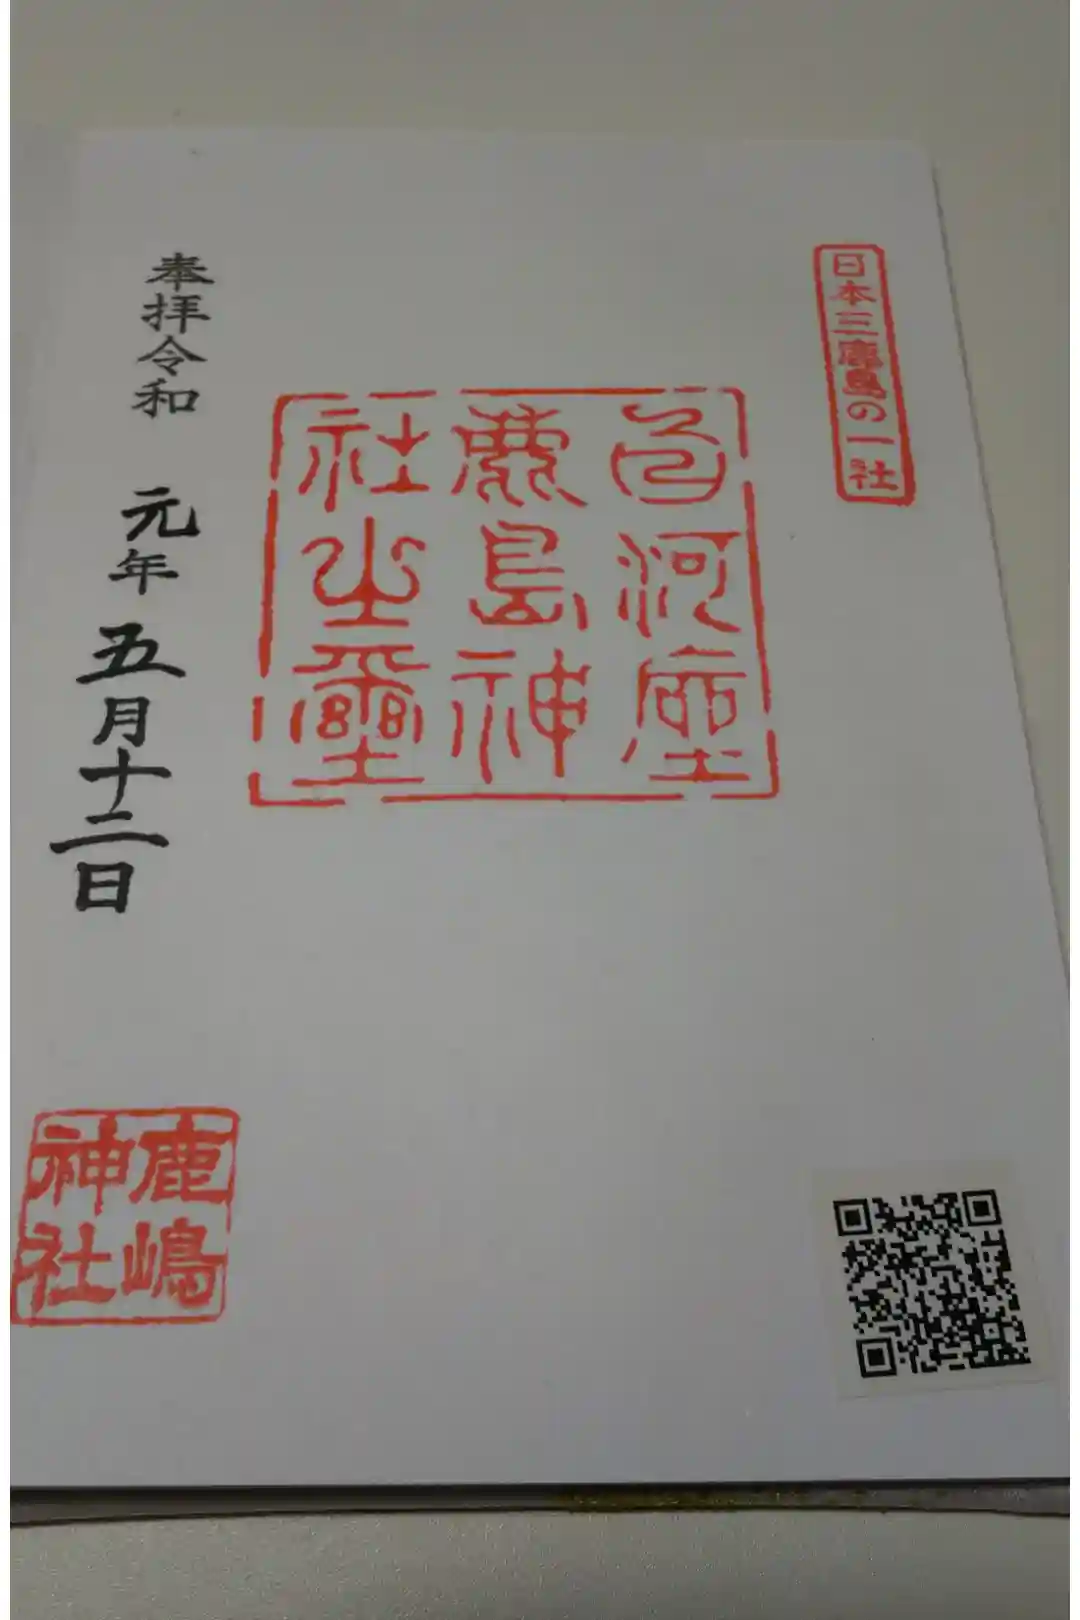 日本三鹿島の一社
河座
鹿島神
社之璽
奉拝令和 元年五月十二日
鹿嶋
神社